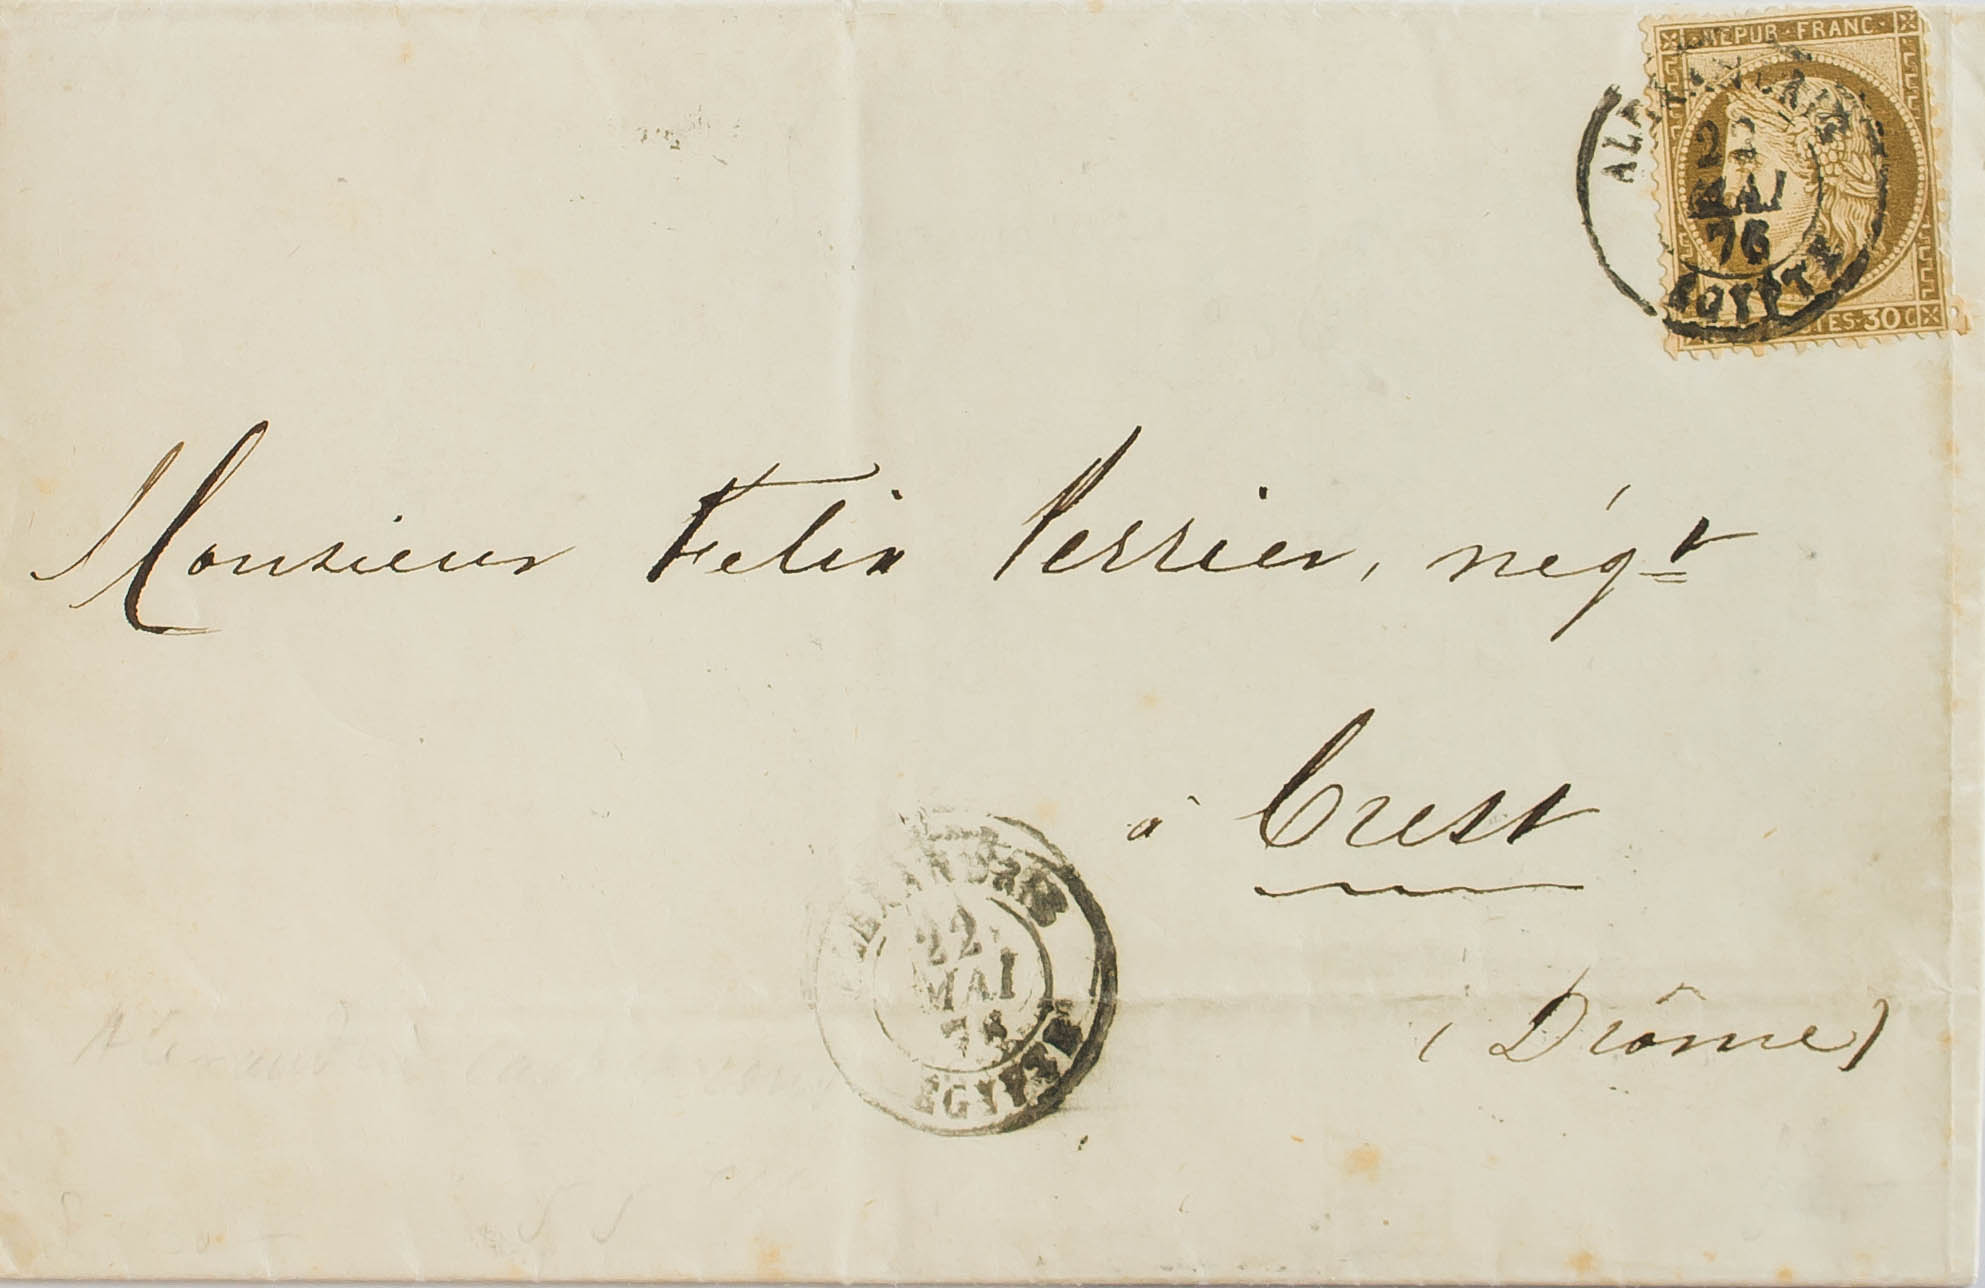 REPUR·FRANC·
ALEXANDRIE
22
MAI
76
EGYPTE
POSTES·30C
Monsieur Felix Perrier, négt
à Crest
ALEXANDRIE
22
MAI
76
EGYPTE
(Drôme)